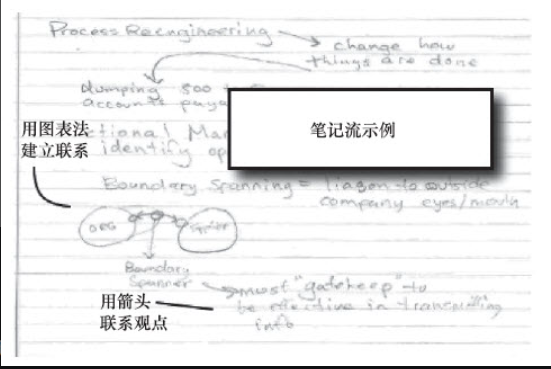 Process Reengineering
change how
things are done
dumping 500
accounts paya
ctional Mar
identify op
笔记流示例
用图表法
建立联系
Boundary Spanning = liason to outside
company eyes/mouth
ORG
Boundary
Spanner
must "gatekeep" to
be effective in transmitting
info
用箭头
联系观点